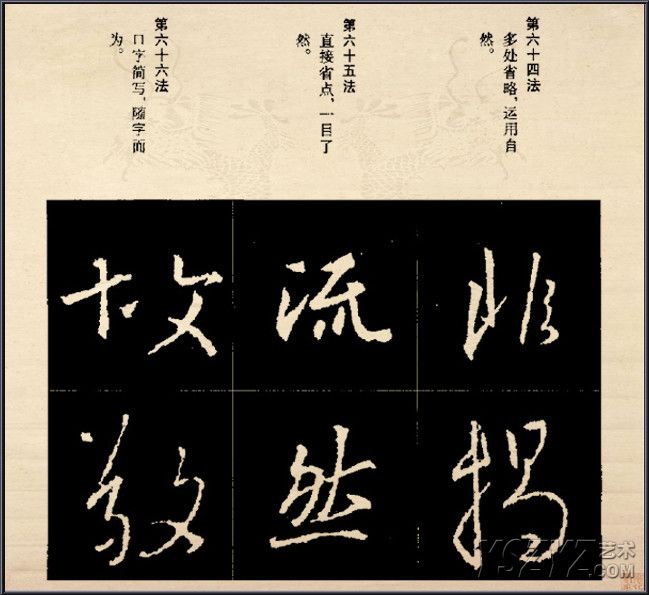 第六十四法
多处省略，运用自
然。
第六十五法
直接省点，一目了
然。
第六十六法
口字简写，随字而
为。
非
揭
流
然
故
敬
YSZYZ艺术
.COM